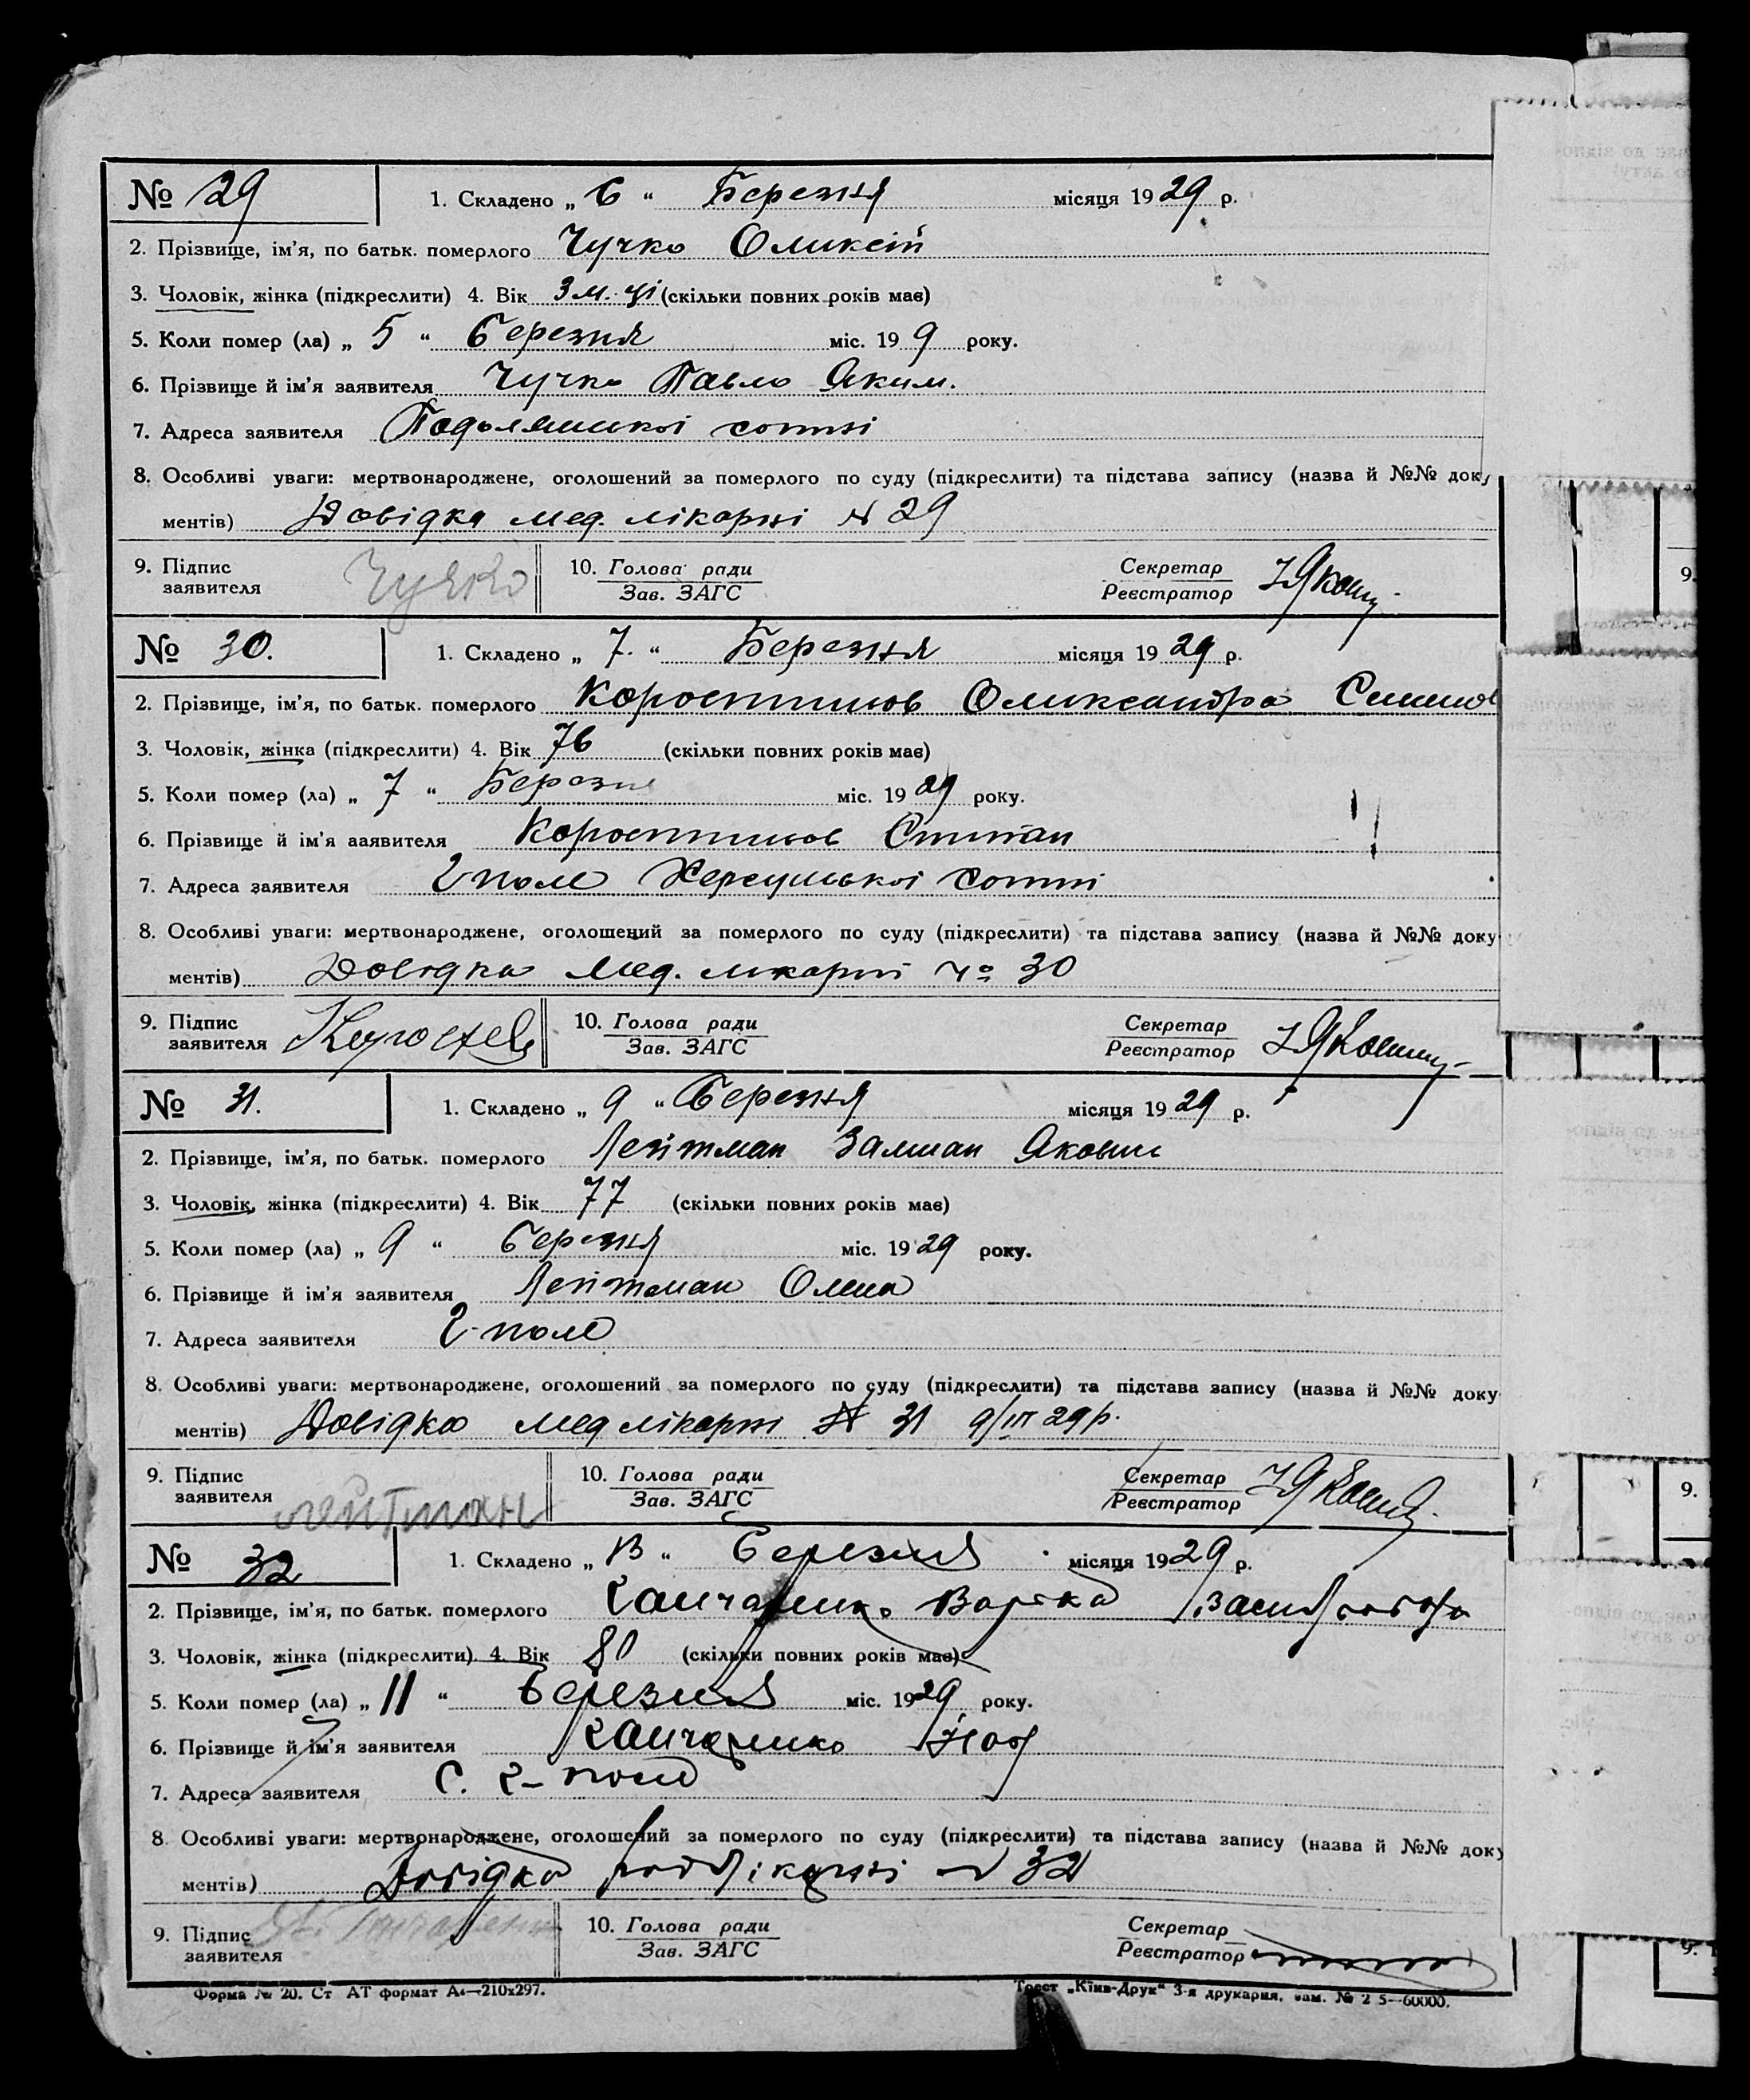 № 29 1. Складено „ 6 “ Березня місяця 1929 р.
2. Прізвище, ім'я, по батьк. померлого Чучко Оликсій
3. Чоловік, жінка (підкреслити) 4. Вік 3 м-ці (скільки повних років має)
5. Коли помер (ла) „ 5 “ березня міс. 19 9 року.
6. Прізвище й ім'я заявителя Чучко Павло Яким.
7. Адреса заявителя сотні
8. Особливі уваги: мертвонароджене, оголошений за померлого по суду (підкреслити) та підстава запису (назва й №№ доку
ментів) Довідка мед. лікарні № 29
9. Підпис заявителя Чучко 10. Голова ради Зав. ЗАГС Секретар Реєстратор
№ 30. 1. Складено „ 7. “ Березня місяця 1929 р.
2. Прізвище, ім'я, по батьк. померлого Олександра
3. Чоловік, жінка (підкреслити) 4. Вік 76 (скільки повних років має)
5. Коли помер (ла) „ 7 “ Березня міс. 1929 року.
6. Прізвище й ім'я ааявителя Степан
7. Адреса заявителя Г-поле сотні
8. Особливі уваги: мертвонароджене, оголошений за померлого по суду (підкреслити) та підстава запису (назва й №№ доку
ментів) Довідка мед. лікарні № 30
9. Підпис заявителя 10. Голова ради Зав. ЗАГС Секретар Реєстратор
№ 31. 1. Складено „ 9 “ березня місяця 1929 р.
2. Прізвище, ім'я, по батьк. померлого Лейтман Залман Якович
3. Чоловік, жінка (підкреслити) 4. Вік 77 (скільки повних років має)
5. Коли помер (ла) „ 9 “ березня міс. 1929 року.
6. Прізвище й ім'я заявителя Лейтман Олена
7. Адреса заявителя Г-поле
8. Особливі уваги: мертвонароджене, оголошений за померлого по суду (підкреслити) та підстава запису (назва й №№ доку
ментів) Довідка мед лікарні № 31 9/III 29 р.
9. Підпис заявителя лейтман 10. Голова ради Зав. ЗАГС Секретар Реєстратор
№ 32 1. Складено „ 13 “ березня місяця 1929 р.
2. Прізвище, ім'я, по батьк. померлого Ганчаренко Варька
3. Чоловік, жінка (підкреслити) 4. Вік 80 (скільки повних років має)
5. Коли помер (ла) „ 11 “ березня міс. 1929 року.
6. Прізвище й ім'я заявителя Ганчаренко
7. Адреса заявителя С. Г-поле
8. Особливі уваги: мертвонароджене, оголошений за померлого по суду (підкреслити) та підстава запису (назва й №№ доку
ментів) Довідка лікарні № 32
9. Підпис заявителя 10. Голова ради Зав. ЗАГС Секретар Реєстратор
Форма № 20. Ст АТ формат А4—210х297. Трест „Київ-Друк“ 3-я друкарня, зам. № 2 5—60000.